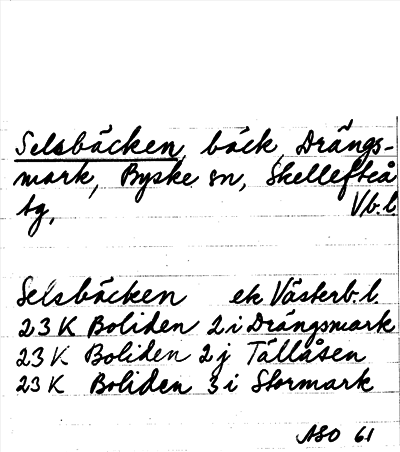 Selsbäcken, bäck, Drängs-
mark, Byske sn, Skellefteå
tg, Vb. l.
Selsbäcken ek Västerb. l.
23 K Boliden 2 i Drängsmark
23 K Boliden 2 j Tällåsen
23 K Boliden 3 i Stormark
ASO 61